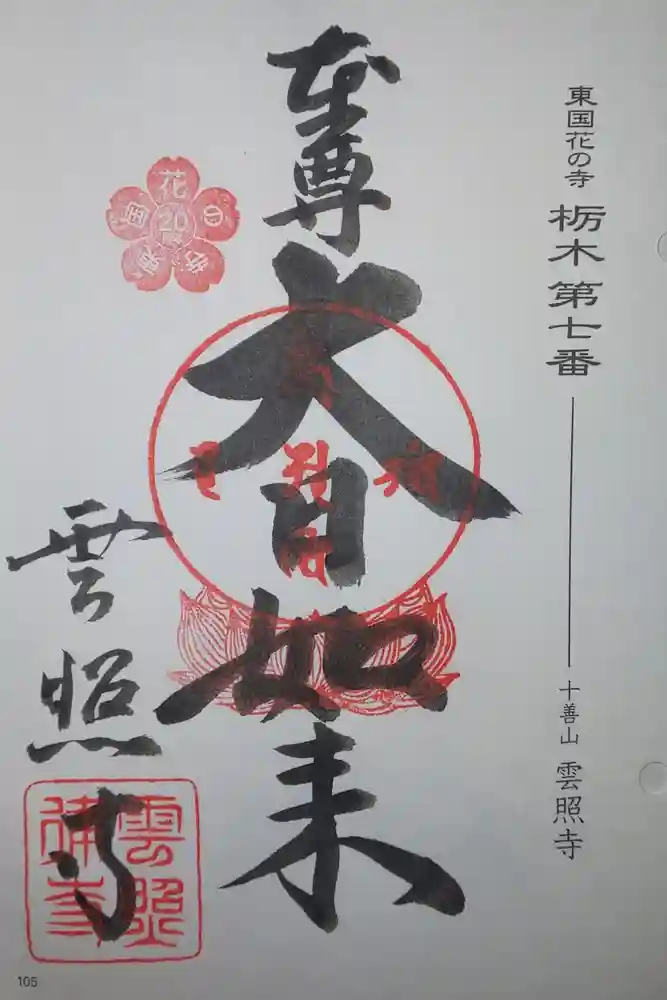 東国花の寺 栃木第七番
十善山 雲照寺
本尊
大日如来
雲照寺
東国花の寺
20
105